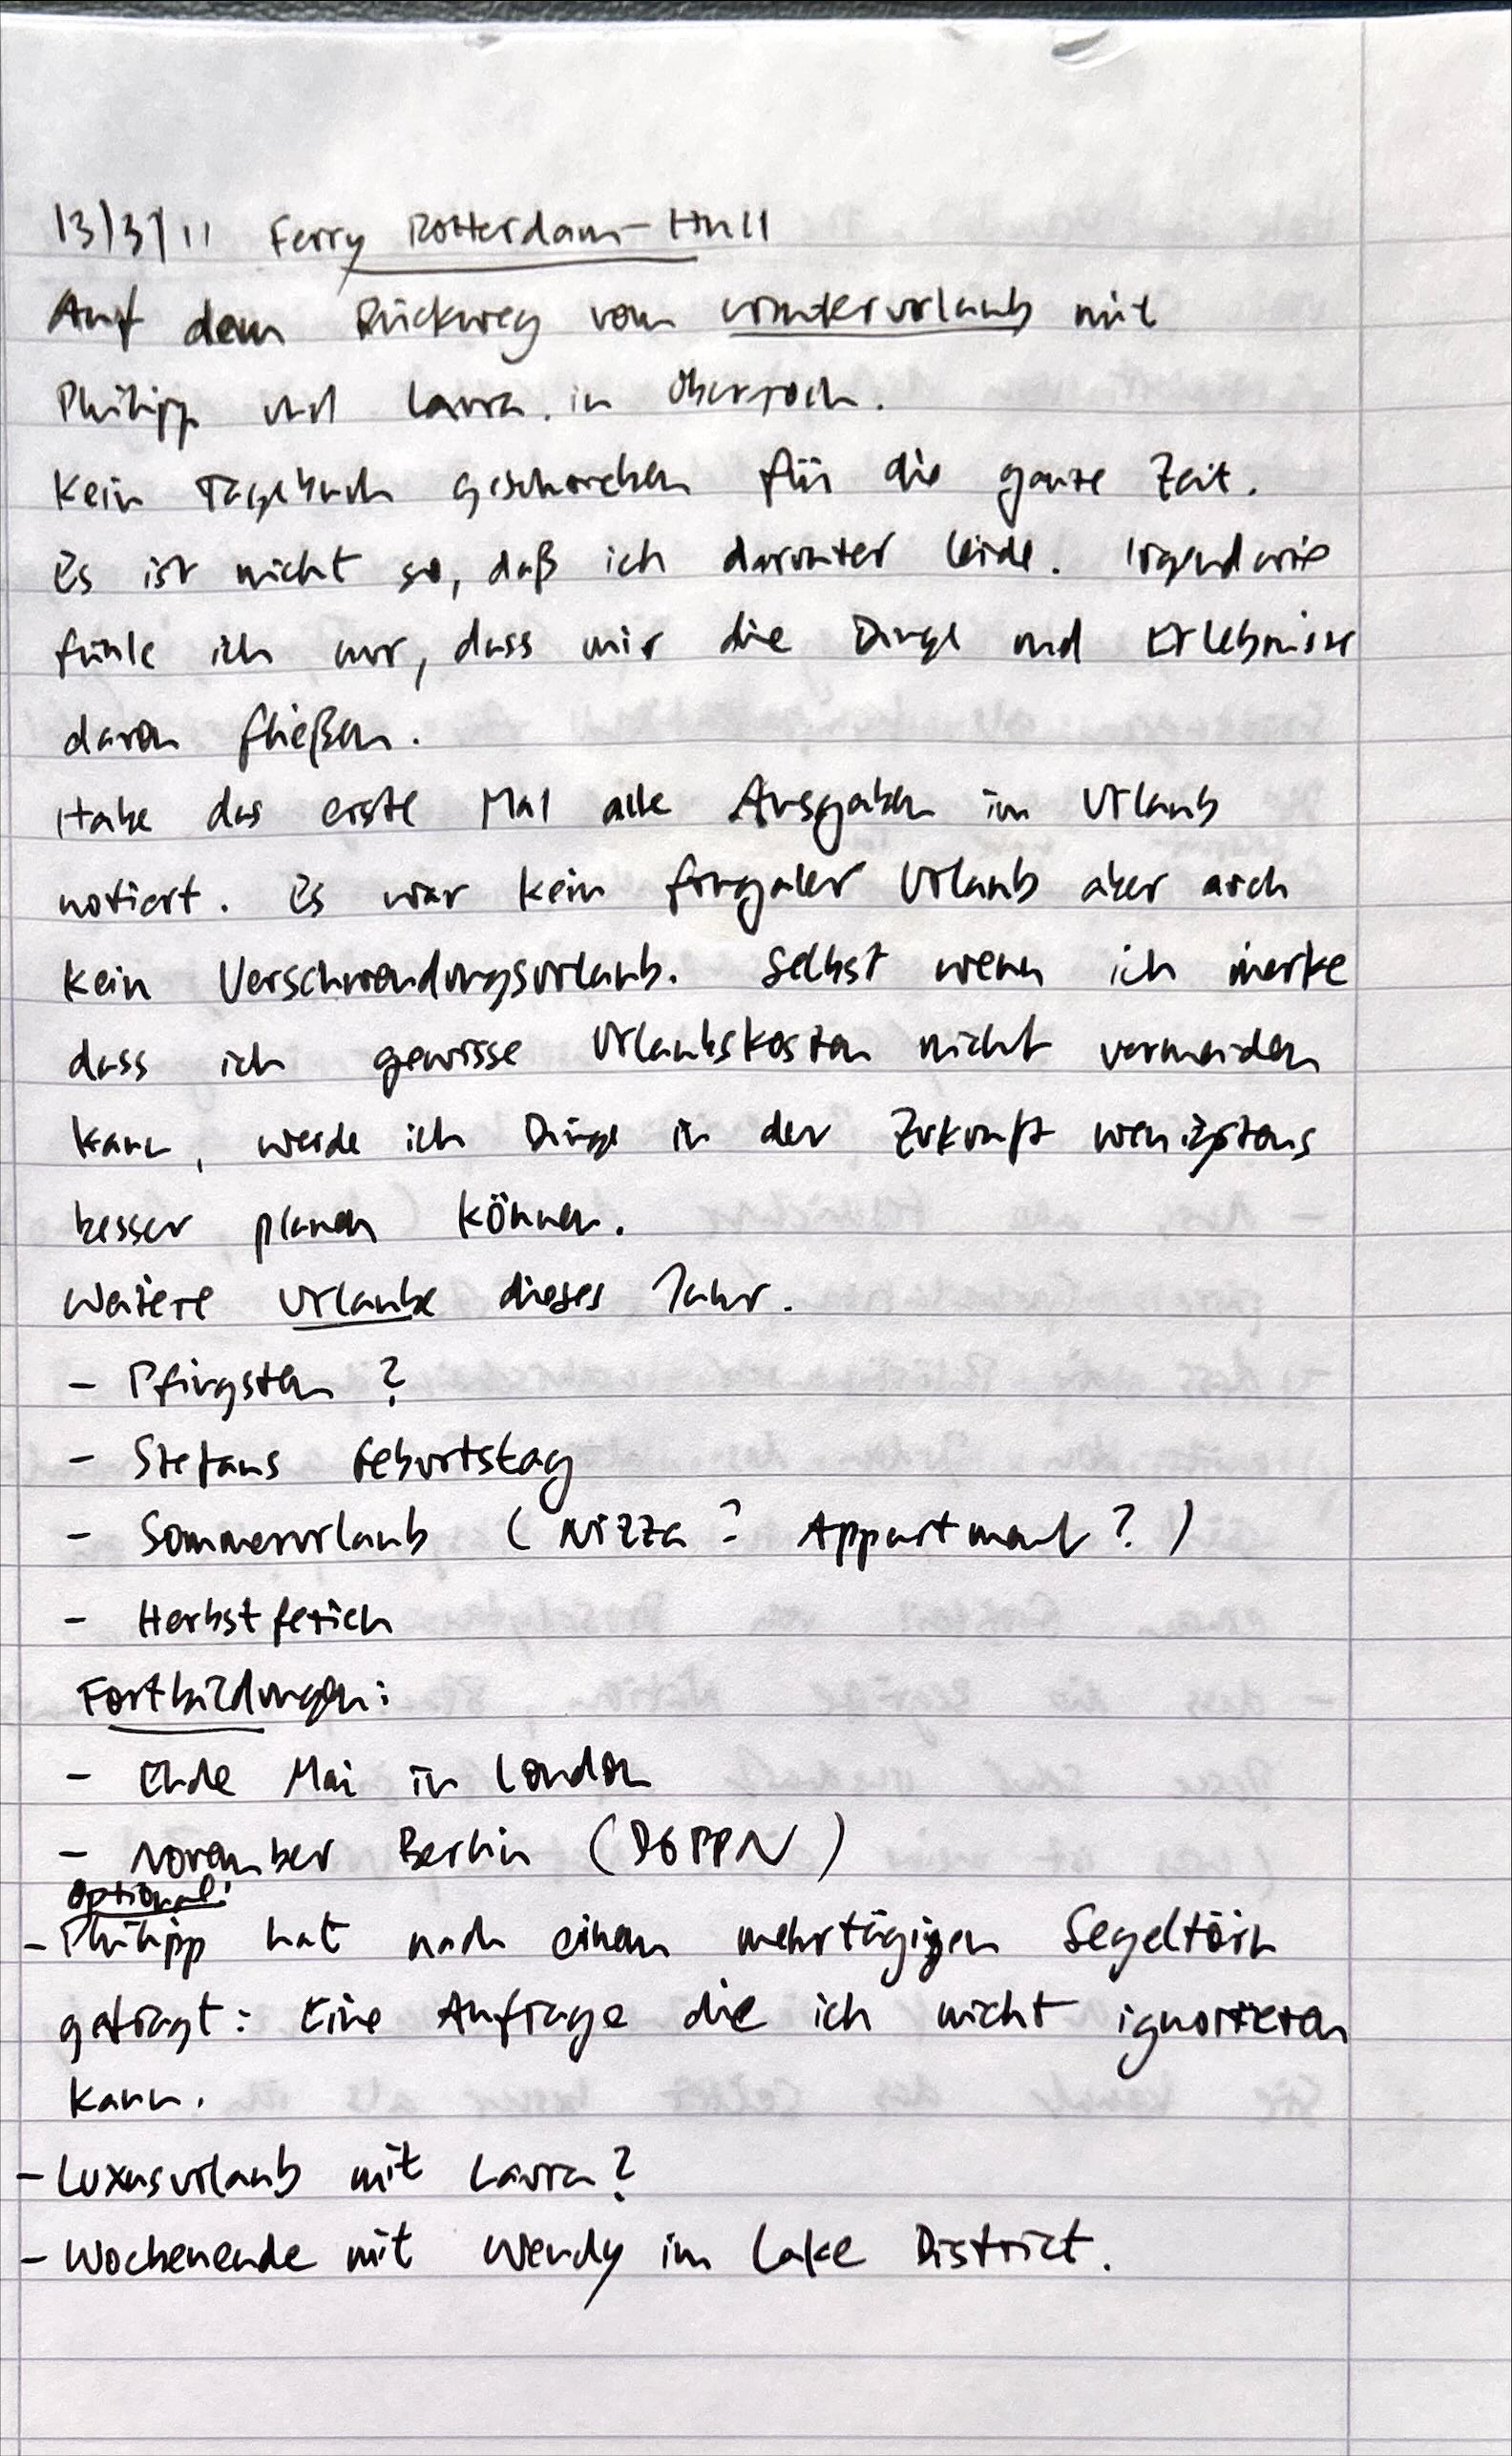 13/3/11 Ferry Rotterdam-Hull
Auf dem Rückweg vom Winterurlaub mit
Philipp und Laura in Oberjoch.
Kein Tagebuch geschrieben für die ganze Zeit.
Es ist nicht so, daß ich darunter leide. Irgendwie
fühle ich nur, dass mir die Dinge und Erlebnisse
davon fließen.
Habe das erste Mal alle Ausgaben im Urlaub
notiert. Es war kein frugaler Urlaub aber auch
kein Verschwendungsurlaub. Selbst wenn ich merke
dass ich gewisse Urlaubskosten nicht vermeiden
kann, werde ich Dinge in der Zukunft wenigstens
besser planen können.
Weitere Urlaube dieses Jahr.
- Pfingsten ?
- Stefans Geburtstag
- Sommerurlaub (Nizza ? Appartment ? )
- Herbstferien
Fortbildungen:
- Ende Mai in London
- November Berlin (DGPPN)
Optional:
- Philipp hat nach einem mehrtägigen Segeltörn
gefragt: Eine Anfrage die ich nicht ignorieren
kann.
- Luxusurlaub mit Laura?
- Wochenende mit Wendy im Lake District.